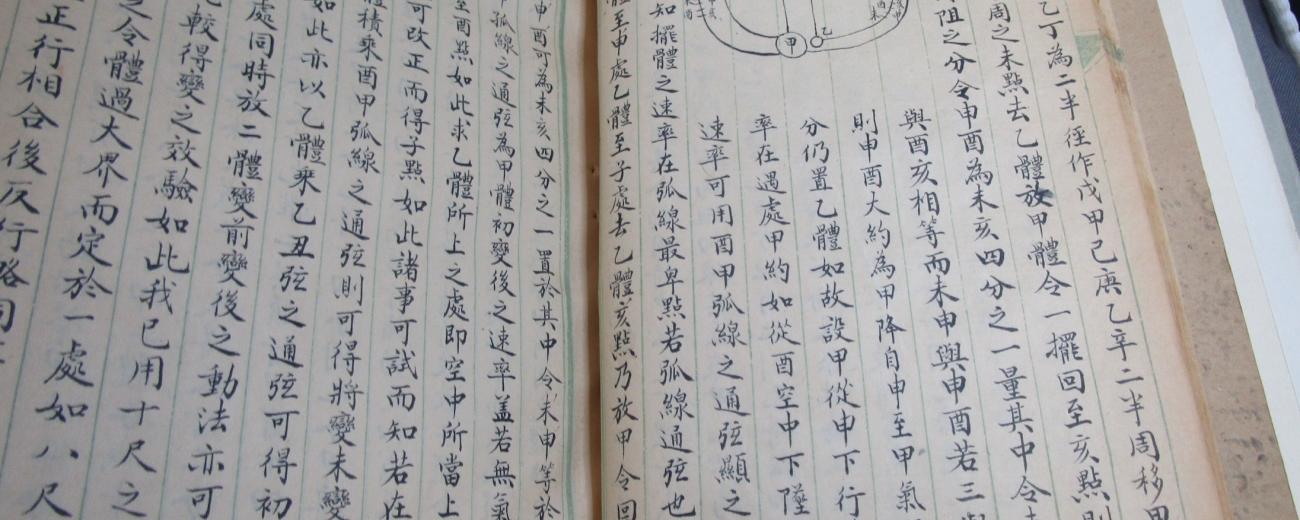 乙丁為二半徑作戊甲己庚乙辛二半周移甲
周之未點去乙體放甲體令一擺回至亥點則
阻之分令申酉為未亥四分之一量其中令
與酉亥相等而未申與申酉若三
則申酉大約為甲降自申至甲氣
分仍置乙體如故設甲從申下行
率在遇處甲約如從酉空中下墜
速率可用酉甲弧線之通弦顯之
知擺體之速率在弧線最卑點若弧線通弦也
體至申處乙體至子處去乙體亥點乃放甲令回
申酉可為未亥四分之一置於其中令未申等於
弧線之通弦為甲體初變後之速率盖若無氣
至酉點如此求乙體所上之處即空中所當上
可改正而得子點如此諸事可試而知若在
體積乘酉甲弧線之通弦則可得將變未變
如此亦以乙體乘乙丑弦之通弦可得初
處同時放二體變前變後之動法亦可
較得變之效驗如此我已用十尺之
之令體過大界而定於一處如八尺
正行相合後反行
甲
乙